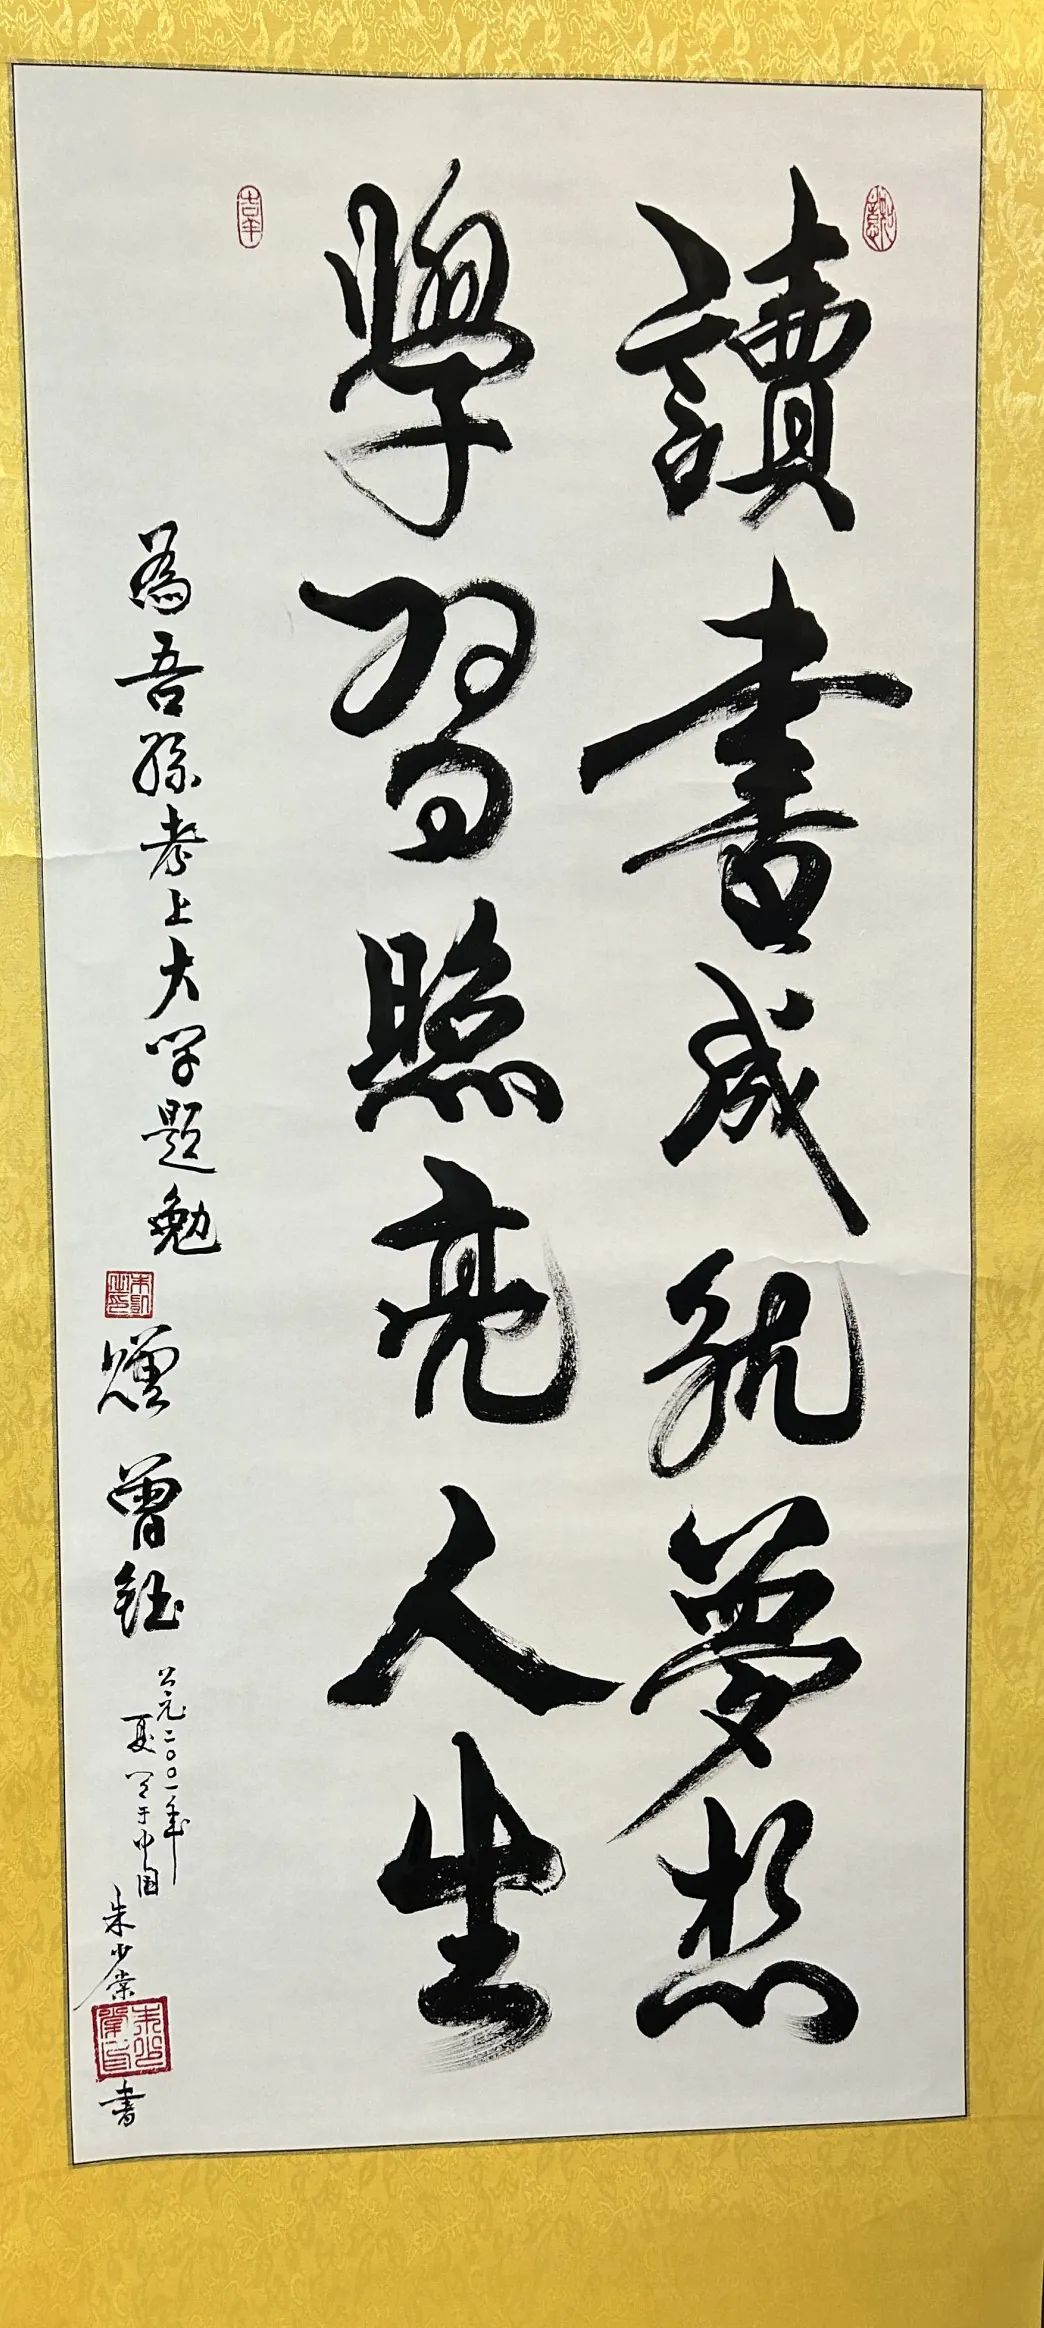 如意
讀書成就夢想
學習照亮人生
吉羊
為吾孫考上大学題勉
贈曾鈺
公元二〇〇一年
夏 于中国
朱少棠
書